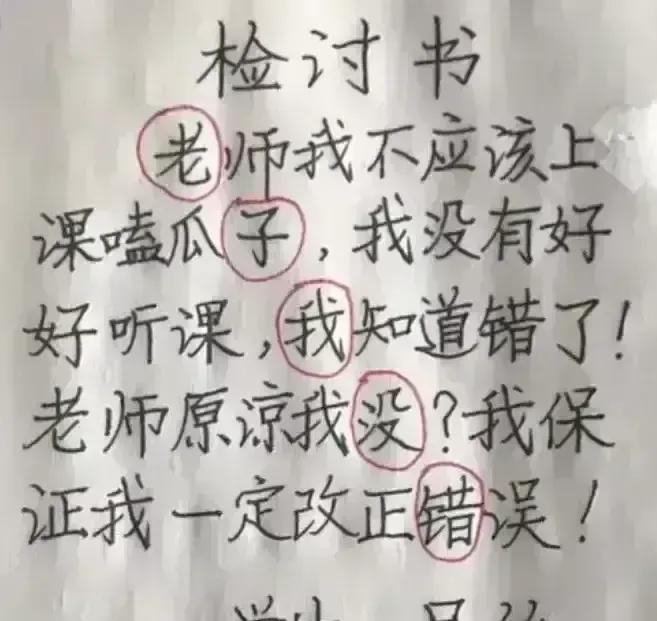 检讨书
老师我不应该上
课嗑瓜子，我没有好
好听课，我知道错了！
老师原谅我没？我保
证我一定改正错误！